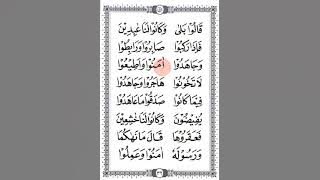 قَالُوْا بَلٰى وَكَانُوْا لَنَا عٰبِدِيْنَ
فَاِذَا رَكِبُوْا صَابِرُوْا وَرَابِطُوْا
وَجَاهَدُوْا اٰمَنُوْا وَاَطِيْعُوا
لَا تَخُوْنُوا هَاجَرُوْا وَجَاهَدُوْا
فِيْمَا كَانُوْا صَدَقُوْا مَا عَاهَدُوا
يُفِيْضُوْنَ وَكَانُوْا لَنَا خٰشِعِيْنَ
فَعَقَرُوْهَا قَالَ مَا نَهٰكُمَا
وَرَسُوْلُهٗ اٰمَنُوْا وَعَمِلُوا